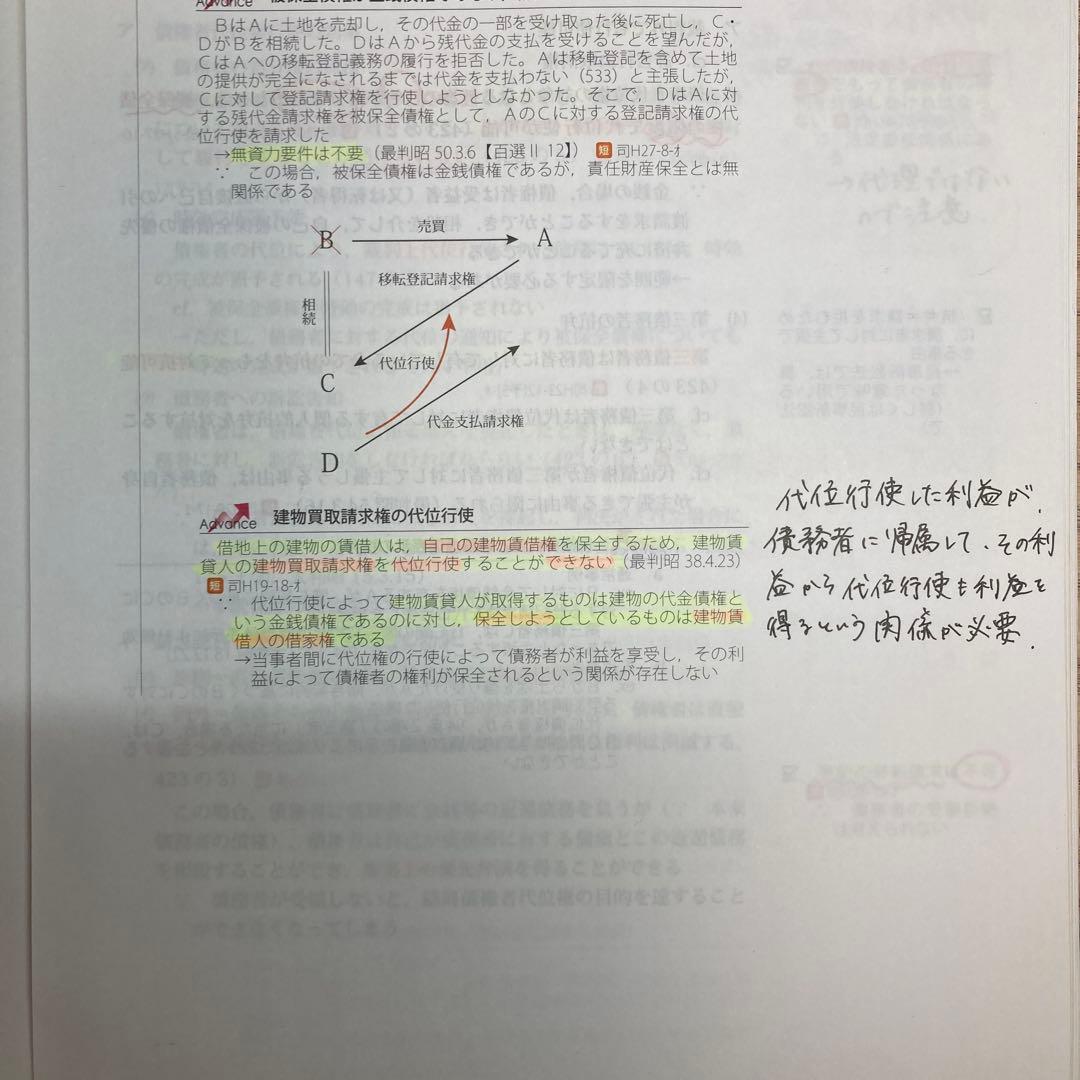 Advance
BはAに土地を売却し，その代金の一部を受け取った後に死亡し，C・
DがBを相続した。DはAから残代金の支払を受けることを望んだが，
CはAへの移転登記義務の履行を拒否した。Aは移転登記を含めて土地
の提供が完全になされるまでは代金を支払わない（533）と主張したが，
Cに対して登記請求権を行使しようとしなかった。そこで，DはAに対
する残代金請求権を被保全債権として，AのCに対する登記請求権の代
位行使を請求した
→無資力要件は不要（最判昭 50.3.6【百選Ⅱ 12】） 短 司H27-8-オ
∵ この場合，被保全債権は金銭債権であるが，責任財産保全とは無
関係である
売買
B
A
移転登記請求権
相続
代位行使
C
代金支払請求権
D
Advance 建物買取請求権の代位行使
借地上の建物の賃借人は，自己の建物賃借権を保全するため，建物賃
貸人の建物買取請求権を代位行使することができない（最判昭 38.4.23）
短 司H19-18-オ
∵ 代位行使によって建物賃貸人が取得するものは建物の代金債権と
いう金銭債権であるのに対し，保全しようとしているものは建物賃
借人の借家権である
→当事者間に代位権の行使によって債務者が利益を享受し，その利
益によって債権者の権利が保全されるという関係が存在しない
代位行使した利益が、
債務者に帰属して、その利
益から代位行使も利益を
得るという関係が必要.